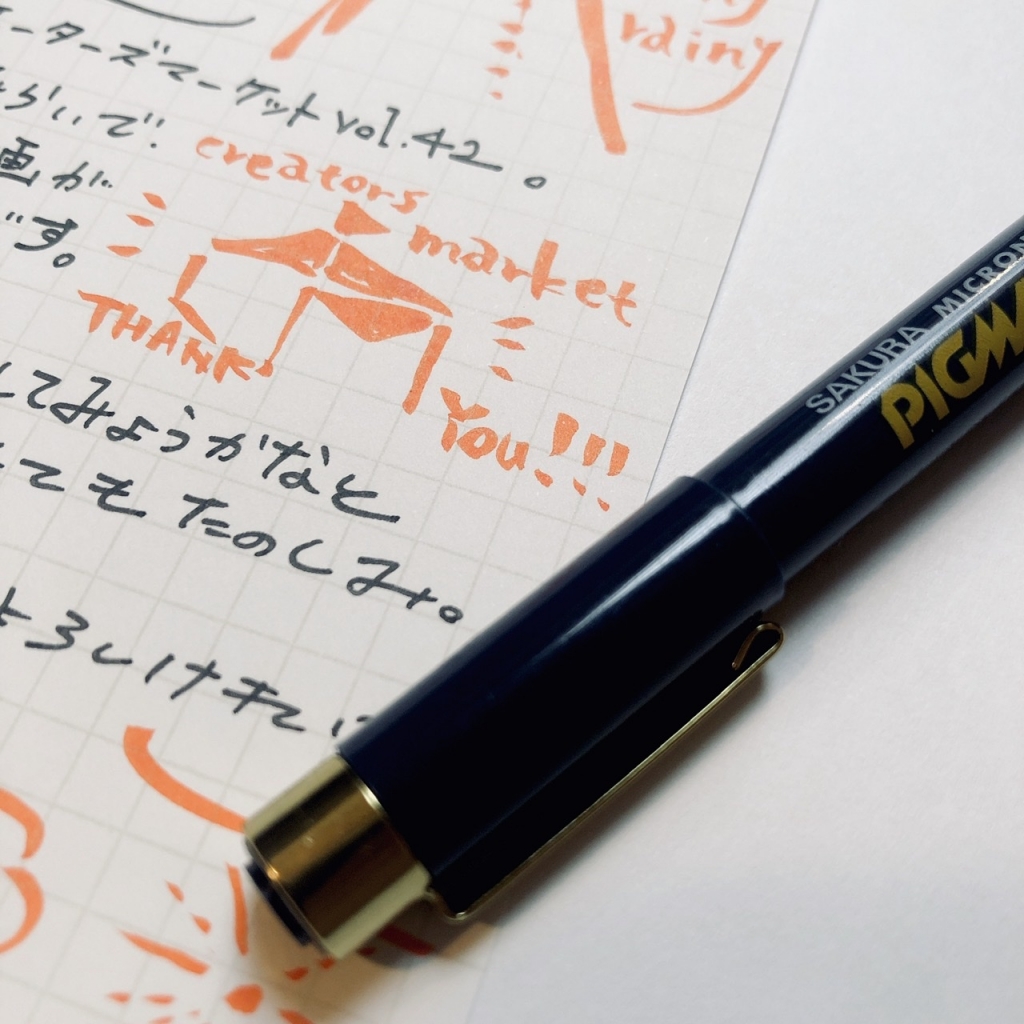 rainy
ーターズマーケット vol.42。
らいで.
creators
画が
market
です。
THANK
You!!!
してみようかなと
てもたのしみ。
よろしけれ
SAKURA MICRON
PIGMA